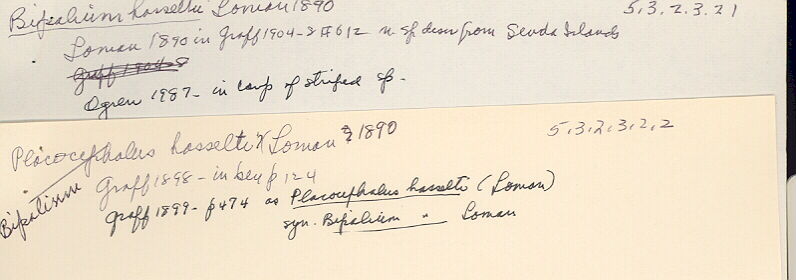 Bipalium hasselti Loman 1890 5.3.2.3.21
Loman 1890 in Graff 1904-8 # 612 n. sp. descr from Sunda Islands
Graff 1904-8
Ogren 1987 - in comp of striped sp.
Placocephalus hasselti Loman 1890 5.3.2.3.2.2
Bipalium
Graff 1898 - in key p 124
Graff 1899 - p 474 as Placocephalus hasselti (Loman)
syn. Bipalium " Loman